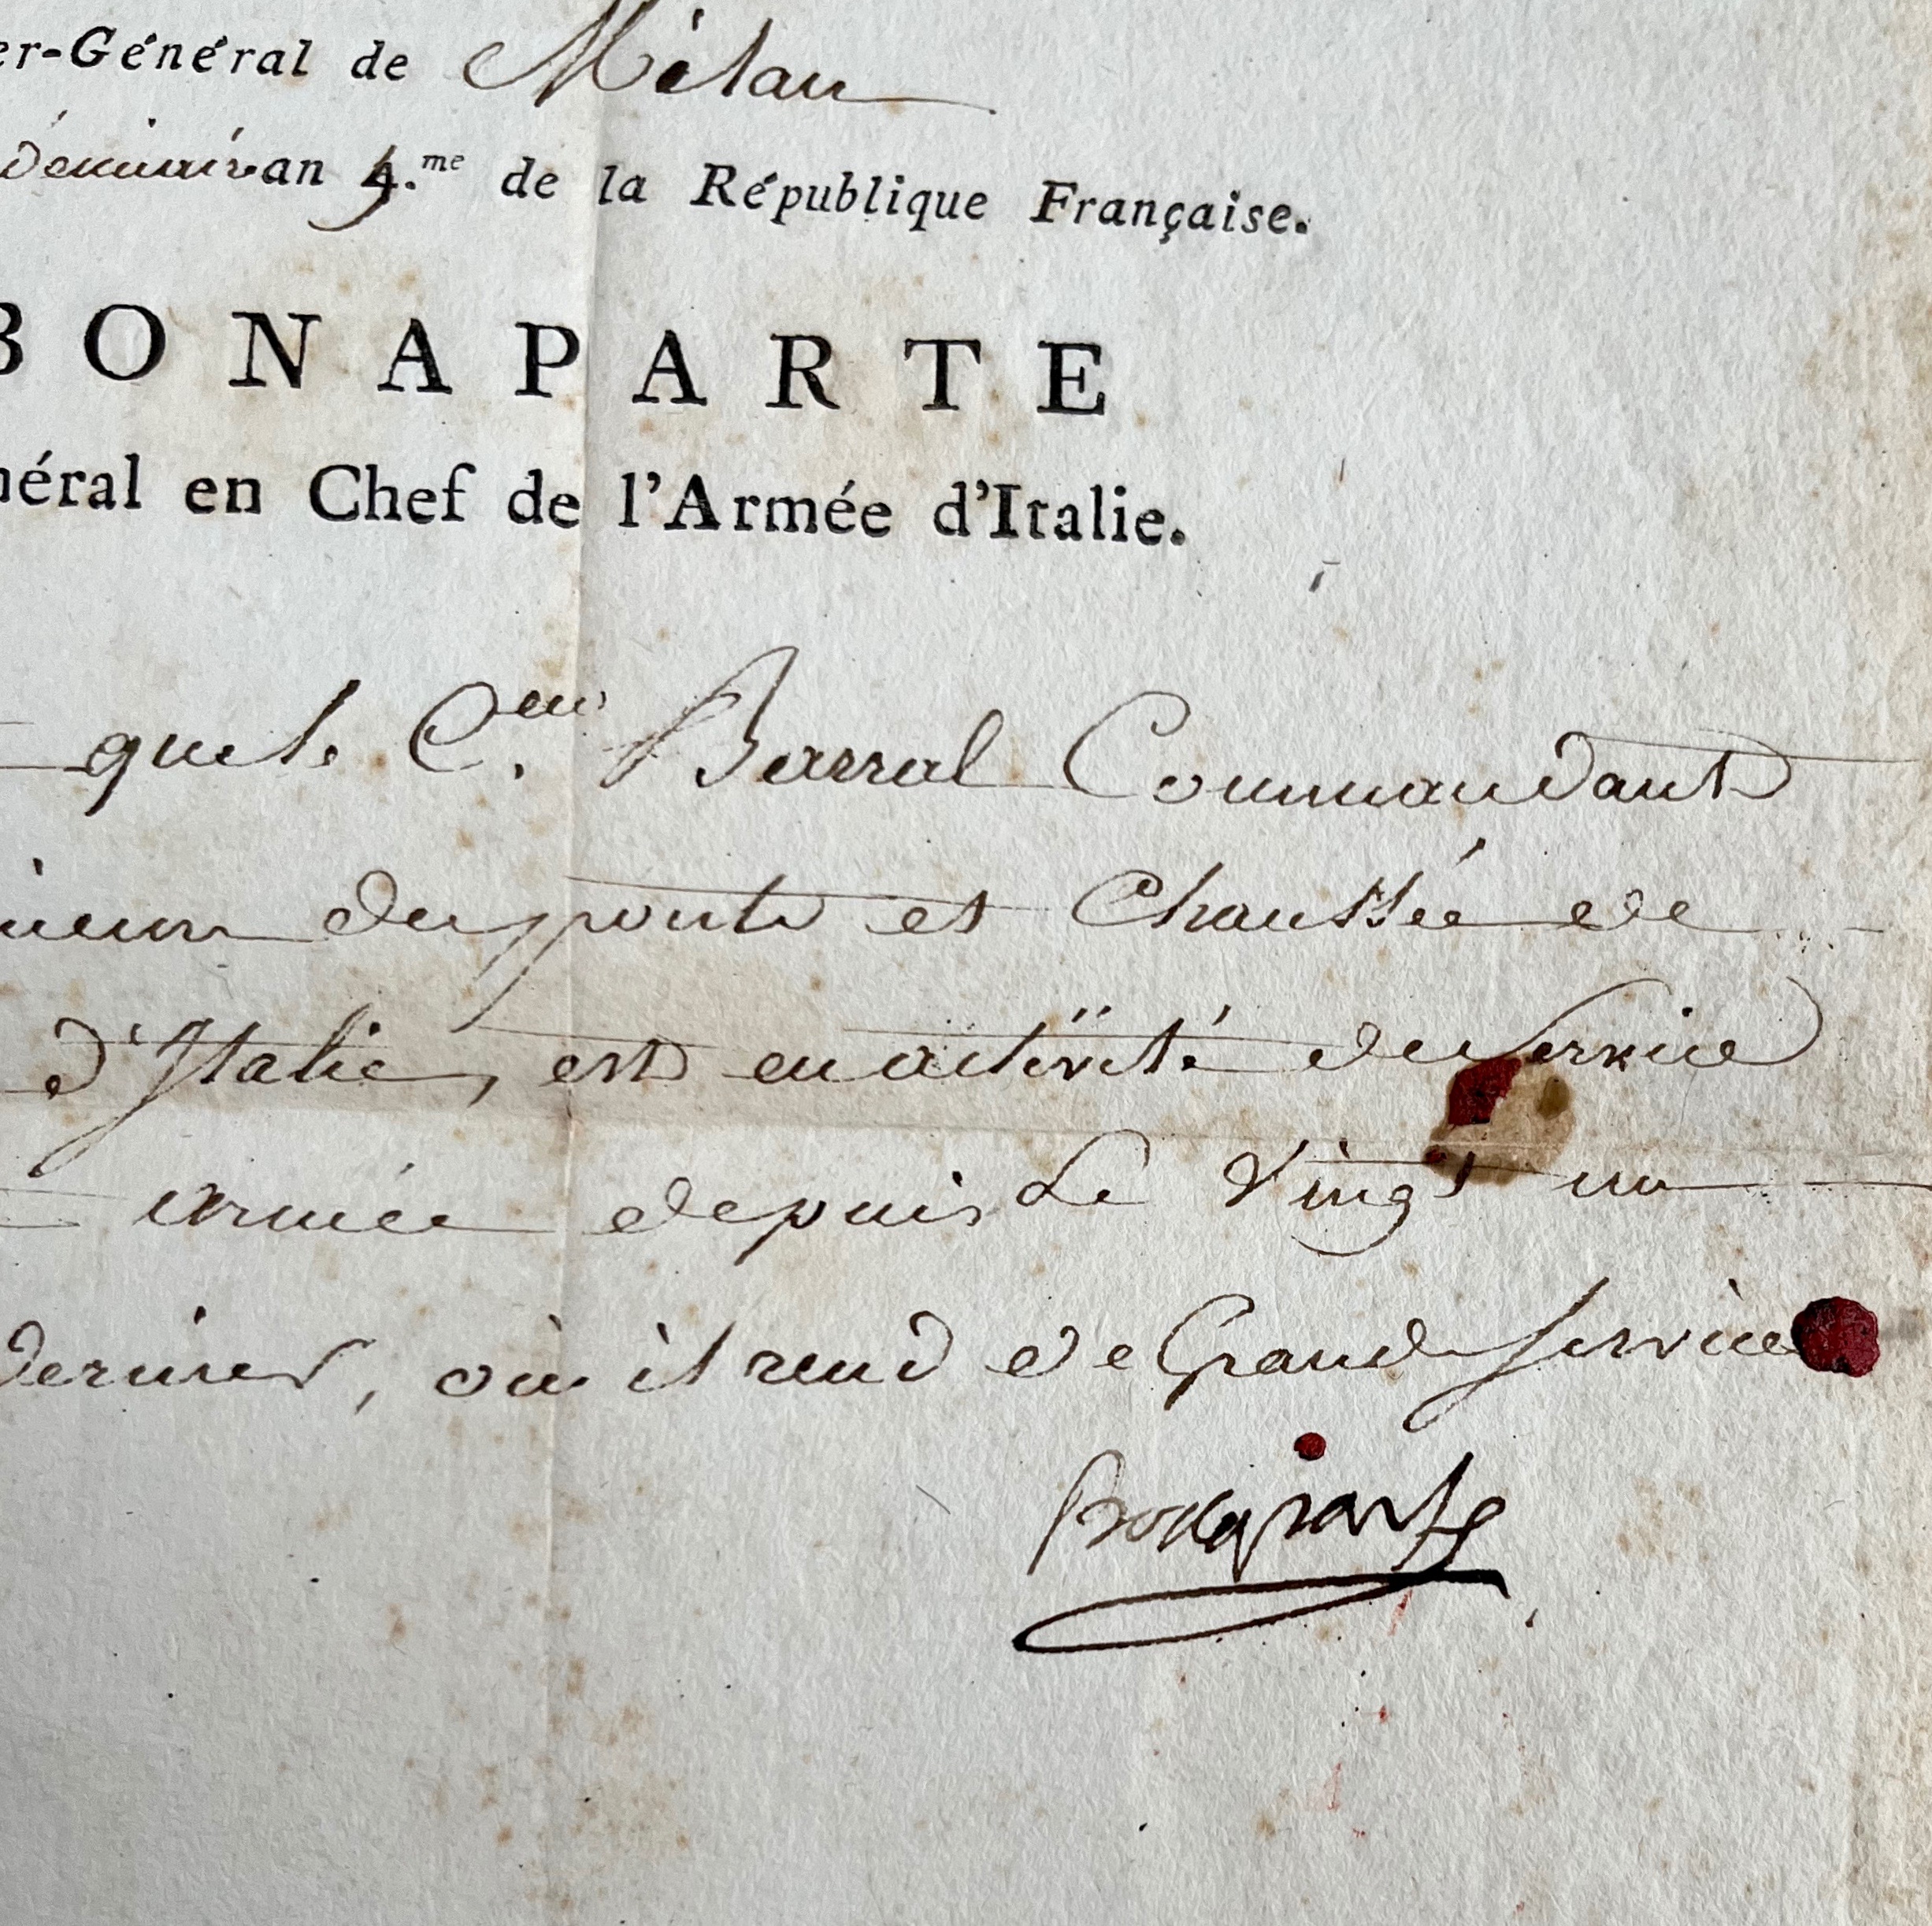 er-Général de Milan
démiair an 5.me de la République Française.
BONAPARTE
néral en Chef de l'Armée d'Italie.
que le C.en Barral Commandant
des ponts et Chaussée de
d'Italie, est en activité de Service
armée depuis Le Vingt un
dernier, où il rend de Grands services
Bonaparte